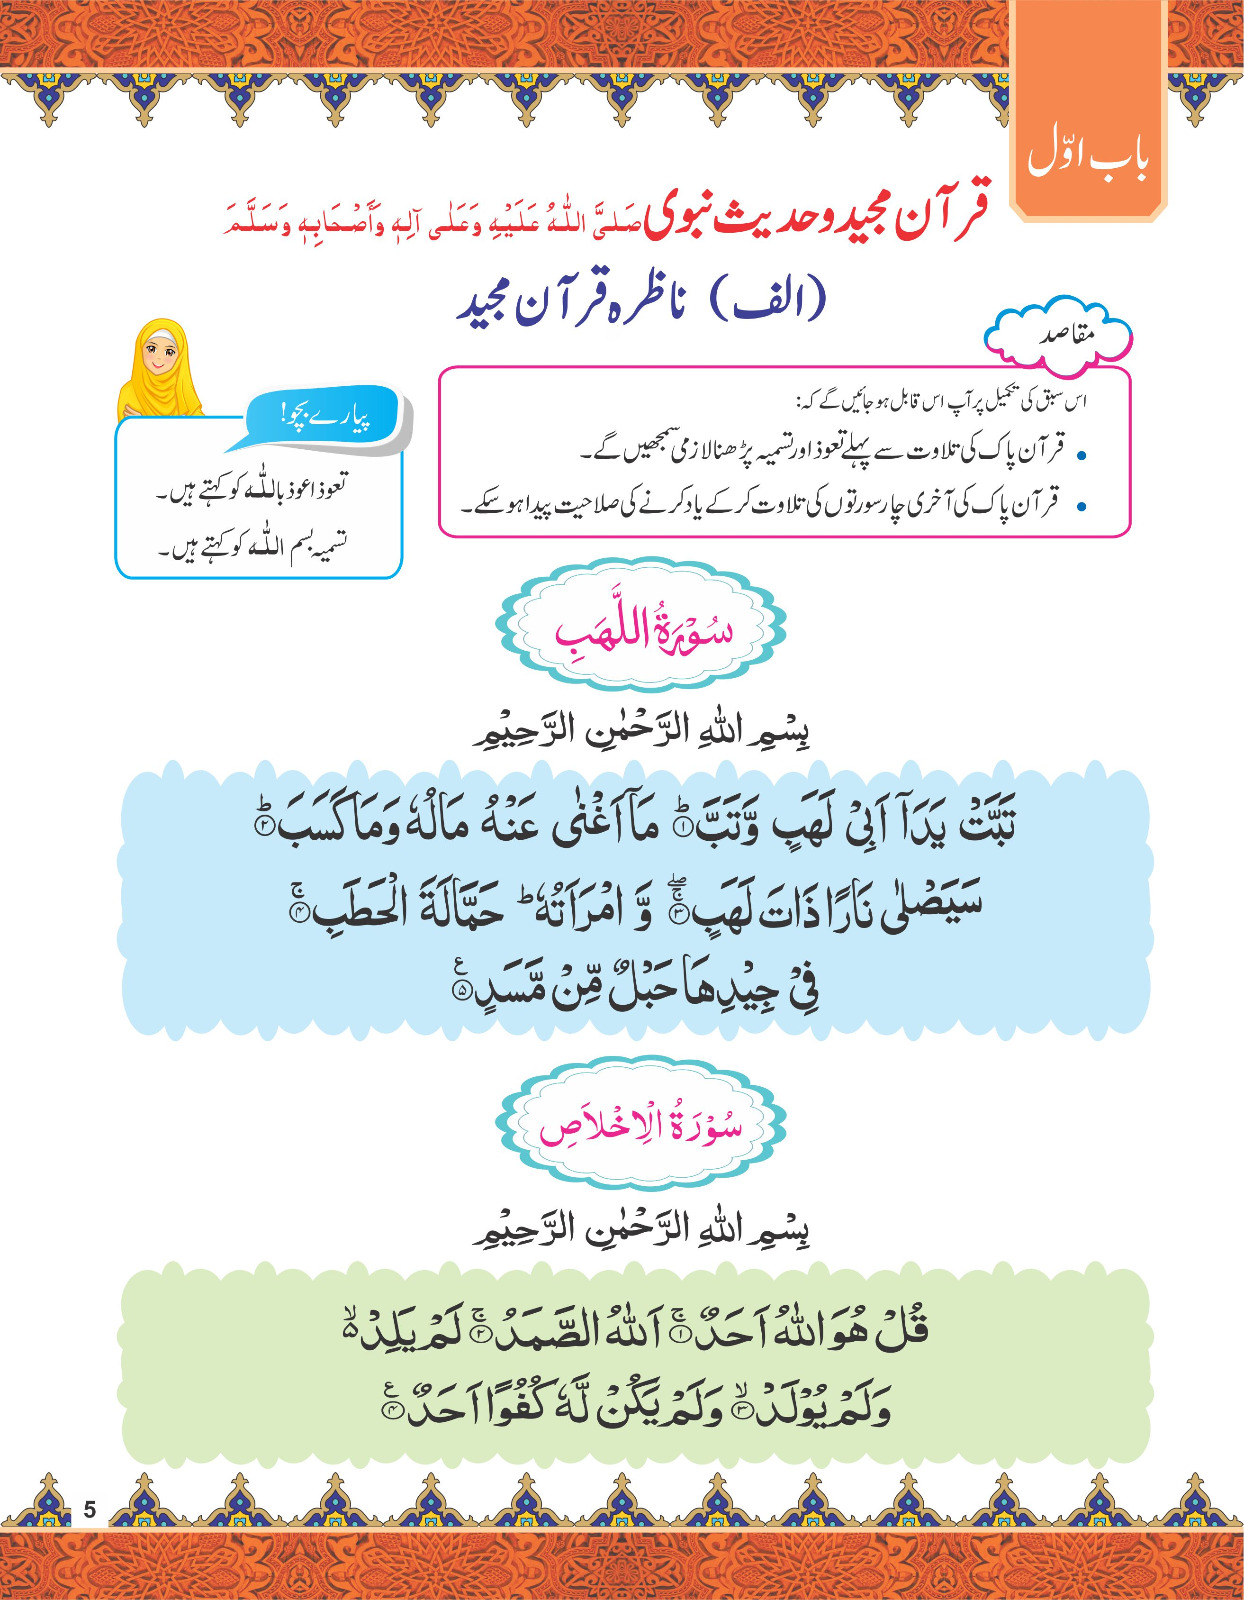 باب اوّل
قرآن مجید و حدیث نبوی صَلَّی اللّٰہُ عَلَیْہِ وَعَلٰی آلِہٖ وَأَصْحَابِہٖ وَسَلَّمَ
(الف) ناظرہ قرآن مجید
مقاصد
اس سبق کی تکمیل پر آپ اس قابل ہو جائیں گے کہ:
• قرآن پاک کی تلاوت سے پہلے تعوذ اور تسمیہ پڑھنا لازمی سمجھیں گے۔
• قرآن پاک کی آخری چار سورتوں کی تلاوت کر کے یاد کرنے کی صلاحیت پیدا ہو سکے۔
پیارے بچو!
تعوذ اعوذ باللّٰہ کو کہتے ہیں۔
تسمیہ بسم اللّٰہ کو کہتے ہیں۔
سُوْرَۃُ اللَّهَبِ
بِسْمِ اللّٰهِ الرَّحْمٰنِ الرَّحِيْمِ
تَبَّتْ يَدَآ اَبِيْ لَهَبٍ وَّتَبَّ ؕ۝۱ مَاۤ اَغْنٰى عَنْهُ مَالُهٗ وَمَا كَسَبَ ؕ۝۲
سَيَصْلٰى نَارًا ذَاتَ لَهَبٍ ۚۖ۝۳ وَّ امْرَاَتُهٗ ؕ حَمَّالَةَ الْحَطَبِ ۚ۝۴
فِيْ جِيْدِهَا حَبْلٌ مِّنْ مَّسَدٍ ۝۵ ع
سُوْرَةُ الْاِخْلَاصِ
بِسْمِ اللّٰهِ الرَّحْمٰنِ الرَّحِيْمِ
قُلْ هُوَ اللّٰهُ اَحَدٌ ۚ۝۱ اَللّٰهُ الصَّمَدُ ۚ۝۲ لَمْ يَلِدْ ۙ۵
وَلَمْ يُوْلَدْ ۙ۝۳ وَلَمْ يَكُنْ لَّهٗ كُفُوًا اَحَدٌ ۝۴ ع
5